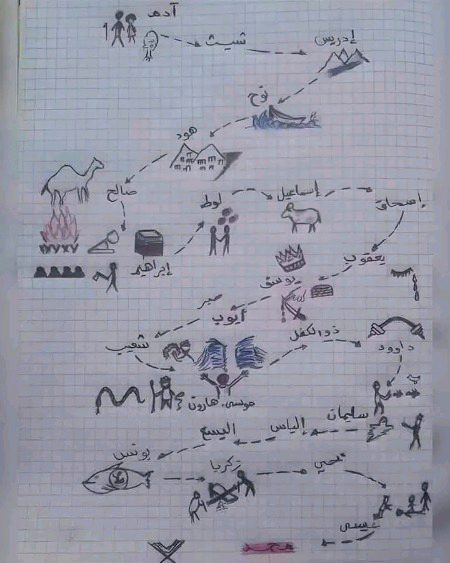 آدم
شيث
إدريس
نوح
هود
صالح
إبراهيم
لوط
إسماعيل
إسحاق
يعقوب
يوسف
صبر
أيوب
شعيب
موسى، هارون
ذو الكفل
داوود
سليمان
إلياس
اليسع
يونس
زكريا
يحي
عيسى
محمد